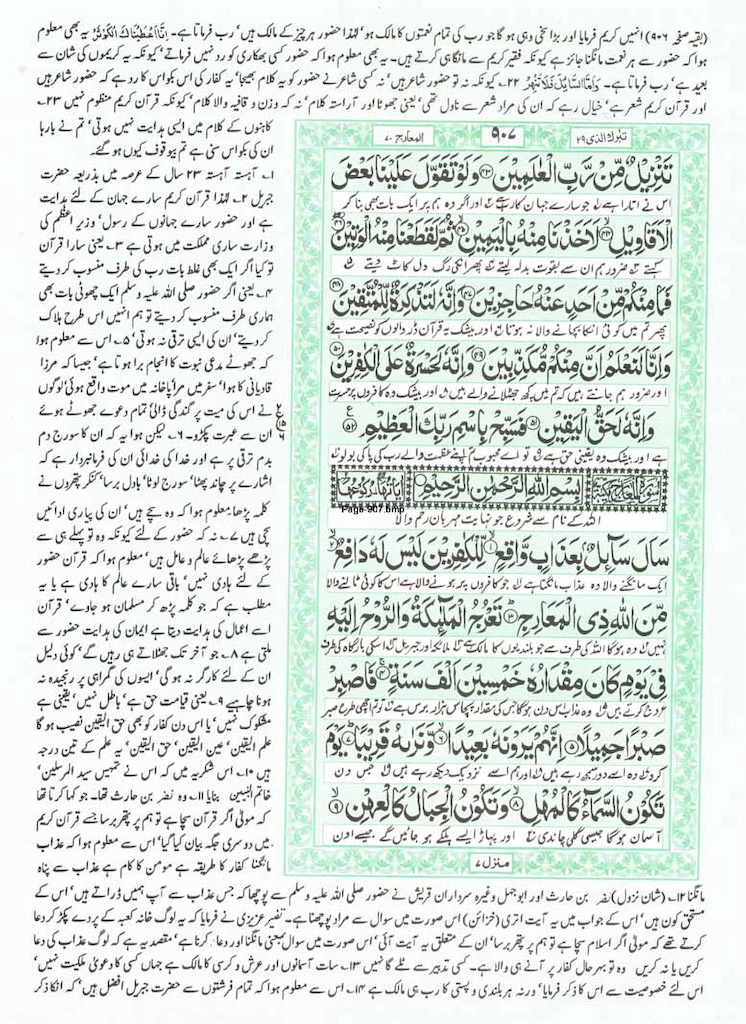 (بقیہ صفحہ ۹۰۶) انہیں کریم فرمایا اور بڑا سخی وہی ہو گا جو رب کی تمام نعمتوں کا مالک ہو' لہٰذا حضور ہر چیز کے مالک ہیں' رب فرماتا ہے۔ اِنَّاۤ اَعْطَیْنٰكَ الْكَوْثَرَ یہ بھی معلوم
ہوا کہ حضور سے ہر نعمت مانگنا جائز ہے کیونکہ فقیر کریم سے مانگا ہی کرتے ہیں۔ یہ بھی معلوم ہوا کہ حضور کسی بھکاری کو رد نہیں فرماتے' کیونکہ یہ کریموں کی شان سے
بعید ہے' رب فرماتا ہے۔ وَاَمَّا السَّآئِلَ فَلَا تَنْهَرْ ۲۲۔ کیونکہ نہ تو حضور شاعر ہیں' نہ کسی شاعر نے حضور کو یہ کلام بھیجا' یہ کفار کی اس بکواس کا رد ہے کہ حضور شاعر ہیں
اور قرآن کریم شعر ہے' خیال رہے کہ ان کی مراد شعر سے ناول تھی' یعنی جھوٹا اور آراستہ کلام' نہ کہ وزن و قافیہ والا کلام' کیونکہ قرآن کریم منظوم نہیں ۲۳۔
کاہنوں کے کلام میں ایسی ہدایت نہیں ہوتی' تم نے بارہا
ان کی بکواس سنی ہے تم بیوقوف کیوں ہو گئے۔
۱۔ آہستہ آہستہ ۲۳ سال کے عرصہ میں بذریعہ حضرت
جبریل ۲۔ لہٰذا قرآن کریم سارے جہان کے لئے ہدایت
ہے اور حضور سارے جہانوں کے رسول' وزیر اعظم کی
وزارت ساری مملکت میں ہوتی ہے ۳۔ یعنی سارا قرآن
تو کیا اگر ایک بھی غلط بات رب کی طرف منسوب کر دیتے
۴۔ یعنی اگر حضور صلی اللہ علیہ وسلم ایک چھوٹی بات بھی
ہماری طرف منسوب کر دیتے تو ہم انہیں اس طرح ہلاک
کر دیتے' ان کی ایسی ترقی نہ ہوتی' ۵۔ اس سے معلوم ہوا
کہ جھوٹے مدعی نبوت کا انجام برا ہوتا ہے' جیسا کہ مرزا
قادیانی کا ہوا' سفر میں مرا پاخانہ میں موت واقع ہوئی' لوگوں
نے اس کی میت پر گندگی ڈالی تمام دعوے جھوٹے ہوئے
ان سے عبرت پکڑو۔ ۶۔ لیکن ہوا یہ کہ ان کا سورج دم
بدم ترقی پر ہے اور خدا کی خدائی ان کی فرمانبردار ہے کہ
اشارے پر چاند پھٹا' سورج لوٹا' بادل برسا' کنکر پتھروں نے
کلمہ پڑھا' معلوم ہوا کہ وہ سچے ہیں' ان کی پیاری ادائیں
سچی ہیں ۷۔ نہ کہ حضور کے لئے کیونکہ وہ تو پہلے ہی سے
پڑھے پڑھائے عالم و عامل ہیں' معلوم ہوا کہ قرآن حضور
کے لئے ہادی نہیں' باقی سارے عالم کا ہادی ہے یا یہ
مطلب ہے کہ جو کلمہ پڑھ کر مسلمان ہو جاوے' قرآن
اسے اعمال کی ہدایت دیتا ہے ایمان کی ہدایت حضور سے
ملتی ہے ۸۔ جو آخر تک جھٹلاتے ہی رہیں گے' کوئی دلیل
ان کے لئے کارگر نہ ہو گی' ایسوں کی گمراہی پر رنجیدہ نہ
ہونا چاہیے ۹۔ یعنی قیامت حق ہے' باطل نہیں' یقینی ہے
مشکوک نہیں' یا اس دن کفار کو بھی حق الیقین نصیب ہو گا
علم الیقین' عین الیقین' حق الیقین' یہ علم کے تین درجہ
ہیں ۱۰۔ اس شکریہ میں کہ اس نے تمہیں سید المرسلین'
خاتم النبیین بنایا ۱۱۔ وہ نضر بن حارث تھا۔ جو کہا کرتا تھا
کہ مولیٰ اگر قرآن سچا ہے تو ہم پر پتھر برسا جسے قرآن کریم
میں دوسری جگہ بیان کیا گیا' اس سے معلوم ہوا کہ عذاب
مانگنا کفار کا طریقہ ہے مومن کا کام ہے عذاب سے پناہ
تبٰرک الذی ۲۹
۹۰۷
المعارج ۷۰
تَنْزِیْلٌ مِّنْ رَّبِّ الْعٰلَمِیْنَ ۴۳ وَلَوْ تَقَوَّلَ عَلَیْنَا بَعْضَ
اس نے اتارا ہے جو سارے جہان کا رب ہے اور اگر وہ ہم پر ایک بات بھی بنا کر
الْاَقَاوِیْلِ ۴۴ لَاَخَذْنَا مِنْهُ بِالْیَمِیْنِ ۴۵ ثُمَّ لَقَطَعْنَا مِنْهُ الْوَتِیْنَ ۴۶
کہتے ضرور ہم ان سے بقوت بدلہ لیتے پھر انکی رگ دل کاٹ دیتے
فَمَا مِنْكُمْ مِّنْ اَحَدٍ عَنْهُ حٰجِزِیْنَ ۴۷ وَاِنَّهٗ لَتَذْكِرَةٌ لِّلْمُتَّقِیْنَ ۴۸
پھر تم میں کوئی انکا بچانے والا نہ ہوتا اور بیشک یہ قرآن ڈر والوں کو نصیحت ہے
وَاِنَّا لَنَعْلَمُ اَنَّ مِنْكُمْ مُّكَذِّبِیْنَ ۴۹ وَاِنَّهٗ لَحَسْرَةٌ عَلَی الْكٰفِرِیْنَ ۵۰
اور ضرور ہم جانتے ہیں کہ تم میں کچھ جھٹلانے والے ہیں اور بیشک وہ کافروں پر حسرت
وَاِنَّهٗ لَحَقُّ الْیَقِیْنِ ۵۱ فَسَبِّحْ بِاسْمِ رَبِّكَ الْعَظِیْمِ ۵۲
ہے اور بیشک وہ یقینی حق ہے تو اے محبوب تم اپنے عظمت والے رب کی پاکی بولو
بِسْمِ اللّٰهِ الرَّحْمٰنِ الرَّحِیْمِ
Page 907.bmp
اللہ کے نام سے شروع جو نہایت مہربان رحم والا
سَاَلَ سَآئِلٌۢ بِعَذَابٍ وَّاقِعٍ ۱ لِّلْكٰفِرِیْنَ لَیْسَ لَهٗ دَافِعٌ ۲
ایک مانگنے والا وہ عذاب مانگتا ہے جو کافروں پر ہونے والا ہے اس کا کوئی ٹالنے والا
مِّنَ اللّٰهِ ذِی الْمَعَارِجِ ۳ تَعْرُجُ الْمَلٰٓئِكَةُ وَالرُّوْحُ اِلَیْهِ
نہیں وہ ہوگا اللہ کی طرف سے جو بلندیوں کا مالک ہے ملائکہ اور جبریل اسکی بارگاہ کی طرف
فِیْ یَوْمٍ كَانَ مِقْدَارُهٗ خَمْسِیْنَ اَلْفَ سَنَةٍ ۴ فَاصْبِرْ
عروج کرتے ہیں وہ عذاب اس دن ہوگا جس کی مقدار پچاس ہزار برس ہے تو تم اچھی طرح صبر
صَبْرًا جَمِیْلًا ۵ اِنَّهُمْ یَرَوْنَهٗ بَعِیْدًا ۶ وَّنَرٰىهُ قَرِیْبًا ۷ یَوْمَ
کرو وہ اسے دور سمجھ رہے ہیں اور ہم اسے نزدیک دیکھ رہے ہیں جس دن
تَكُوْنُ السَّمَآءُ كَالْمُهْلِ ۸ وَتَكُوْنُ الْجِبَالُ كَالْعِهْنِ ۹
آسمان ہوگا جیسی گلی چاندی اور پہاڑ ایسے ہلکے ہو جائیں گے جیسے اون
منزل ۷
مانگنا ۱۲۔ (شان نزول) نضر بن حارث اور ابوجہل وغیرہ سرداران قریش نے حضور صلی اللہ علیہ وسلم سے پوچھا کہ جس عذاب سے آپ ہمیں ڈراتے ہیں' اس کے
مستحق کون ہیں' اس کے جواب میں یہ آیت اتری (خزائن) اس صورت میں سوال سے مراد پوچھنا ہے۔ تفسیر عزیزی نے فرمایا کہ یہ لوگ خانہ کعبہ کے پردے پکڑ کر دعا
کرتے تھے کہ مولیٰ اگر اسلام سچا ہے تو ہم پر پتھر برسا' ان کے متعلق یہ آیت آئی' اس صورت میں سوال بمعنی مانگنا اور دعا کرنا ہے' مقصد یہ ہے کہ لوگ عذاب کی دعا
کریں یا نہ کریں وہ تو بہرحال کفار پر آنے ہی والا ہے۔ کسی تدبیر سے ٹلے گا نہیں ۱۳۔ سات آسمانوں اور عرش و کرسی کا مالک ہے جہاں کسی کا دعویٰ ملکیت نہیں'
اس لئے خصوصیت سے اس کا ذکر فرمایا' ورنہ ہر بلندی و پستی کا رب ہی مالک ہے ۱۴۔ اس سے معلوم ہوا کہ تمام فرشتوں سے حضرت جبریل افضل ہیں' کہ انکا ذکر